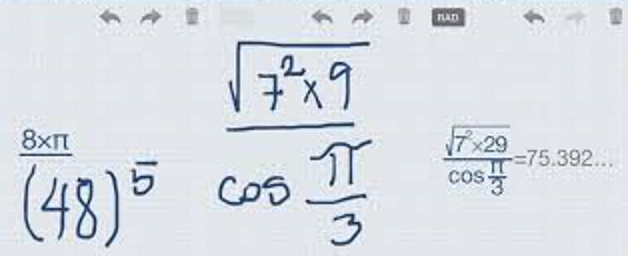 8×π
(48)^5
√7²×9
cos π/3
RAD
√7²×29
cos π/3
=75.392...